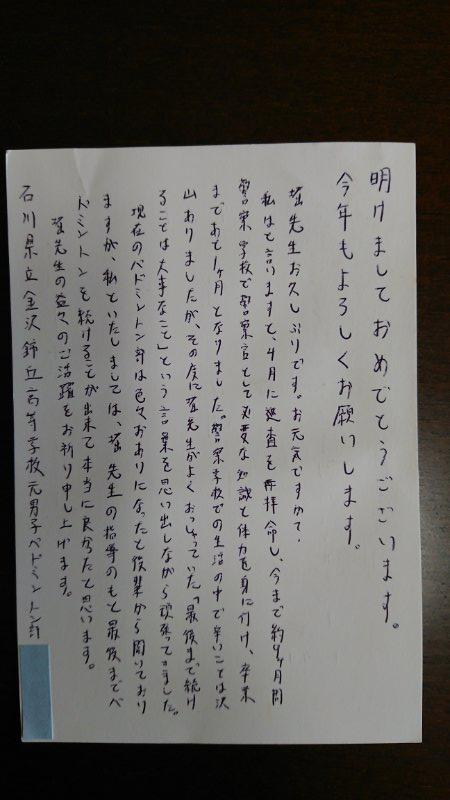 明けましておめでとうございます。
今年もよろしくお願いします。
堀先生お久しぶりです。お元気ですか?
私はと言いますと、4月に巡査を拝命し、今まで約9ヶ月間
警察学校で警察官として必要な知識と体力を身に付け、卒業
まであと1ヶ月となりました。警察学校での生活の中で辛いことは沢
山ありましたが、その度に堀先生がよくおっしゃっていた「最後まで続け
ることは大事なこと」という言葉を思い出しながら頑張ってきました。
現在のバドミントン部は色々おありになったと後輩から聞いており
ますが、私といたしましては、堀先生の指導のもと最後までバ
ドミントンを続けることが出来て本当に良かったと思います。
堀先生の益々のご活躍をお祈り申し上げます。
石川県立金沢錦丘高等学校元男子バドミントン部